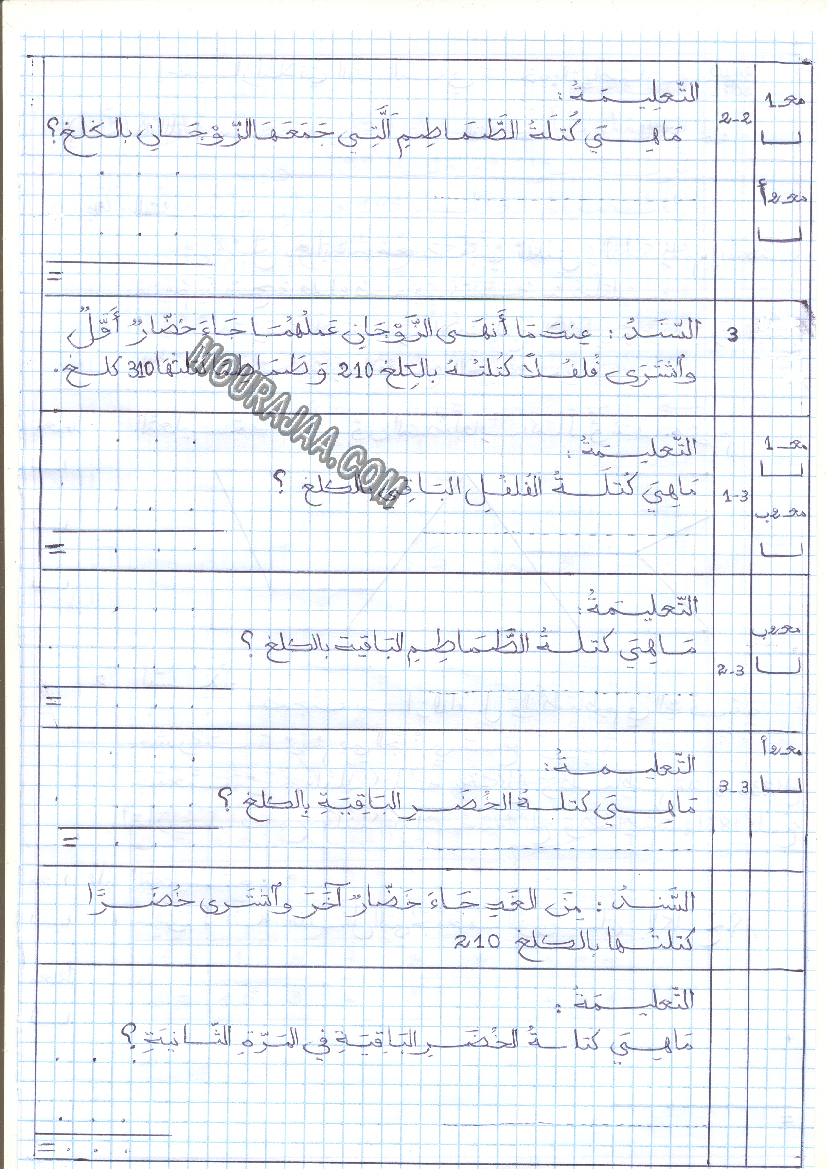 التّعليمَةُ :
مَا هِيَ كُتلَةُ الطَّمَاطِمِ الَّتِي جَمَعَهَا الزّوْجَانِ بالكلغ؟
2-2
معـ 1
معـ 2أ
=
3
السّنَدُ : عِندَ مَا أَنهَى الزَّوْجَانِ عَمَلَهُمَا جَاءَ خَضّارٌ أَوّلُ
وَاشْتَرَى فُلفُلًا كُتلتُهُ بالكلغ 210 وَطَمَاطِمَ كتلتها 310 كلغ.
MOURAJAA.COM
التّعليمَةُ :
مَا هِيَ كُتلَةُ الفُلفُلِ البَاقِي بالكلغ ؟
1-3
معـ 1
معـ 2ب
=
التّعليمَةُ :
مَا هِيَ كتلةُ الطَّمَاطِمِ البَاقية بالكلغ ؟
2-3
معـ 2ب
=
التّعليمَةُ :
مَا هِيَ كتلةُ الخُضَرِ البَاقِيَةِ بالكلغ ؟
3-3
معـ 2أ
=
السّندُ : مِنَ الغَدِ جَاءَ خَضّارٌ آخَرَ وَاشتَرى خُضَرًا
كتلتُها بالكلغ 210
التّعليمَةُ :
مَا هِيَ كتلةُ الخُضَرِ البَاقِيَةِ في المَرّةِ الثّانيَةِ؟
=